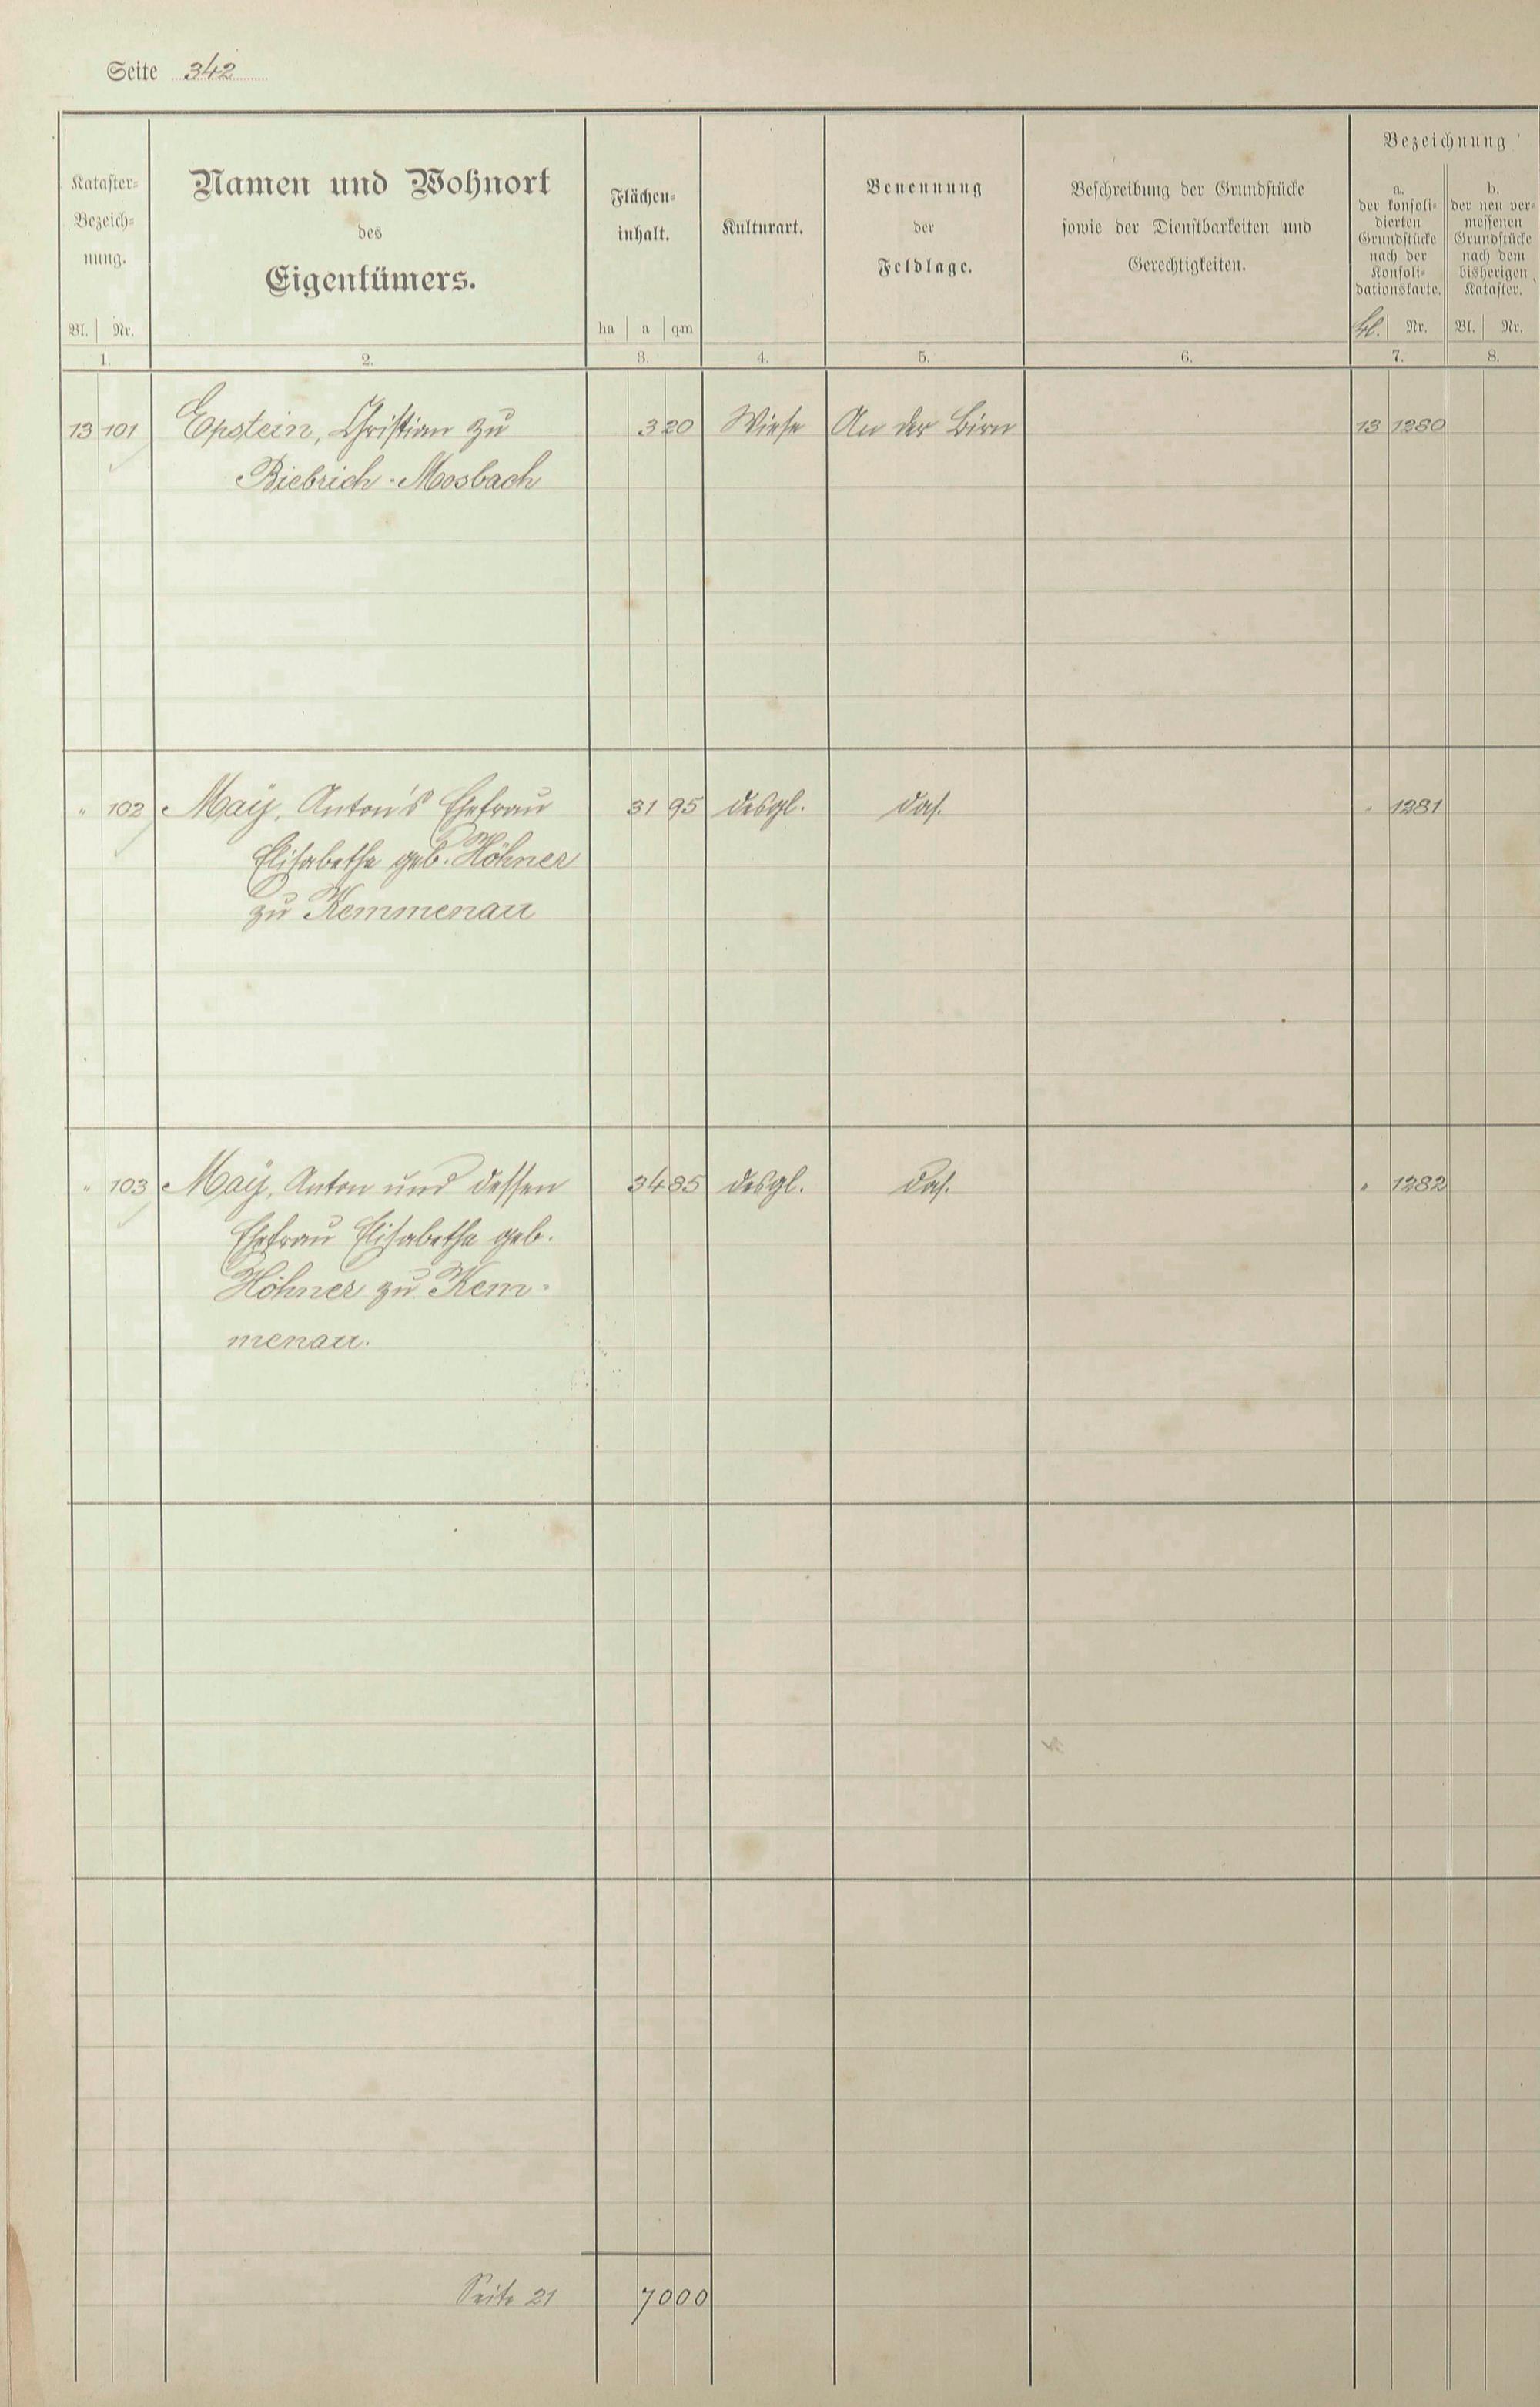 Seite 342
Kataster-
Bezeich-
nung.
Bl. Nr.
1.
Namen und Wohnort
des
Eigentümers.
2.
Flächen-
inhalt.
ha a qm
3.
Kulturart.
4.
Benennung
der
Feldlage.
5.
Beschreibung der Grundstücke
sowie der Dienstbarkeiten und
Gerechtigkeiten.
6.
Bezeichnung
a.
der konsoli-
dierten
Grundstücke
nach der
Konsoli-
dationskarte.
Bl. Nr.
7.
b.
der neu ver-
messenen
Grundstücke
nach dem
bisherigen
Kataster.
Bl. Nr.
8.
13 101 Epstein, Christian zu 3 20 Wiese An der Birn 13 1280
Biebrich-Mosbach
" 102 Maÿ, Anton's Ehefrau 31 95 desgl. das. " 1281
Elisabethe geb. Höhner
zu Kemmenau
" 103 Maÿ, Anton und dessen 34 85 desgl. das. " 1282
Ehefrau Elisabethe geb.
Höhner zu Kem-
menau.
Seite 21 70 00